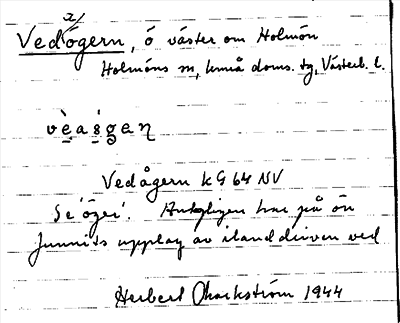 x/
Vedögern, ö väster om Holmön
Holmöns sn, Umeå doms. tg, Västerb. l.
vèasgan
Vedågern k G 64 NV
Se 'Ögei'. Antagligen har på ön
funnits upplag av ilanddriven ved
Herbert Markström 1944